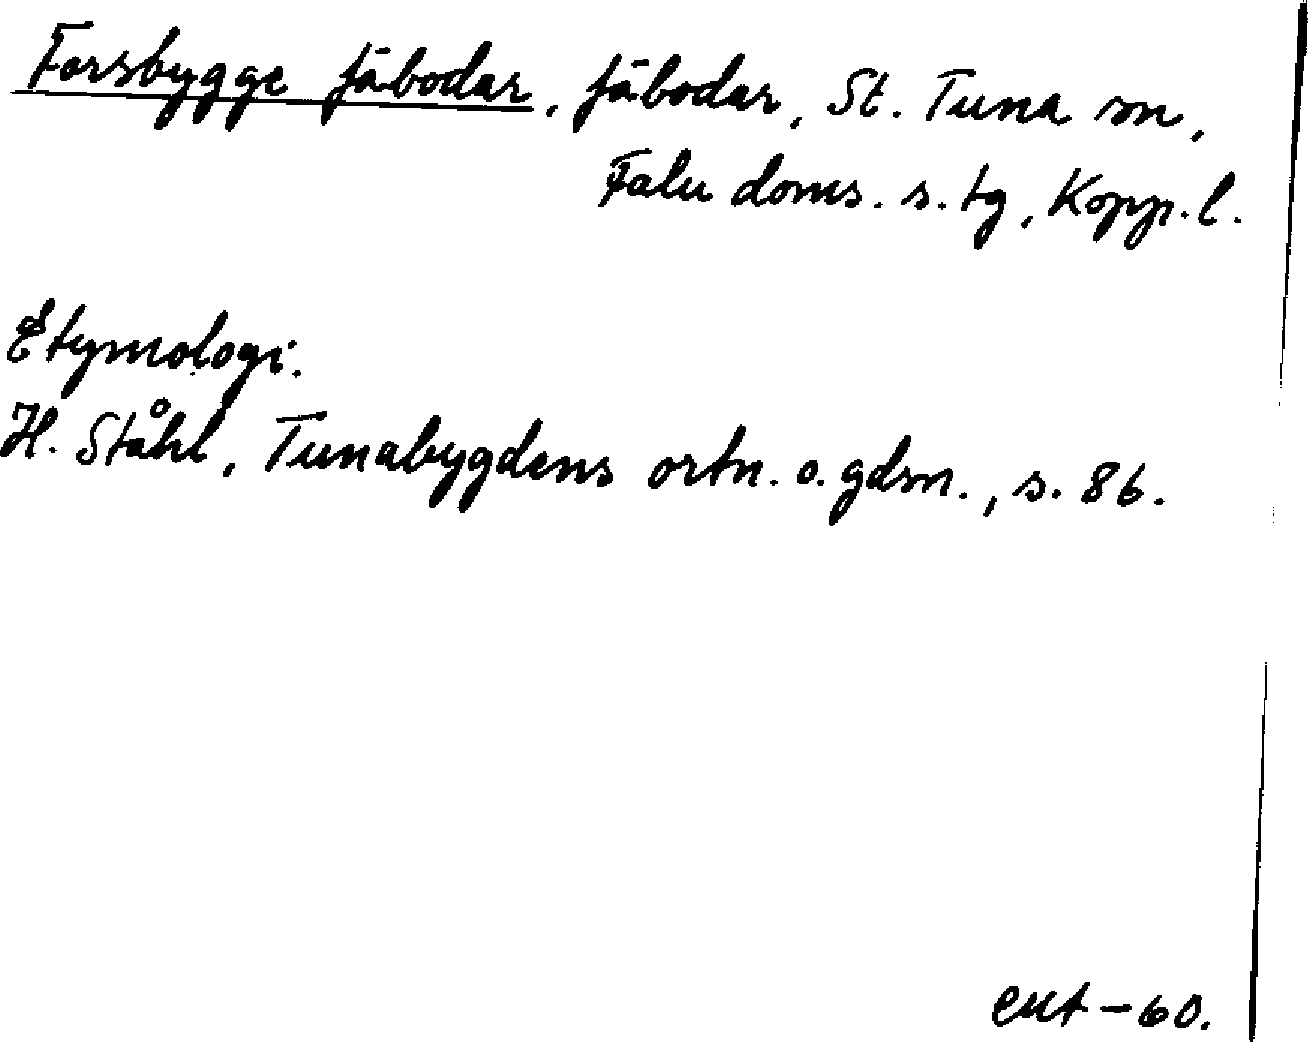 Forsbygge fäbodar, fäbodar, St. Tuna sn,
Falu doms. s. tg, Kopp. l.
Etymologi.
H. Ståhl, Tunabygdens ortn. o. gdsn., s. 86.
EMt-60.